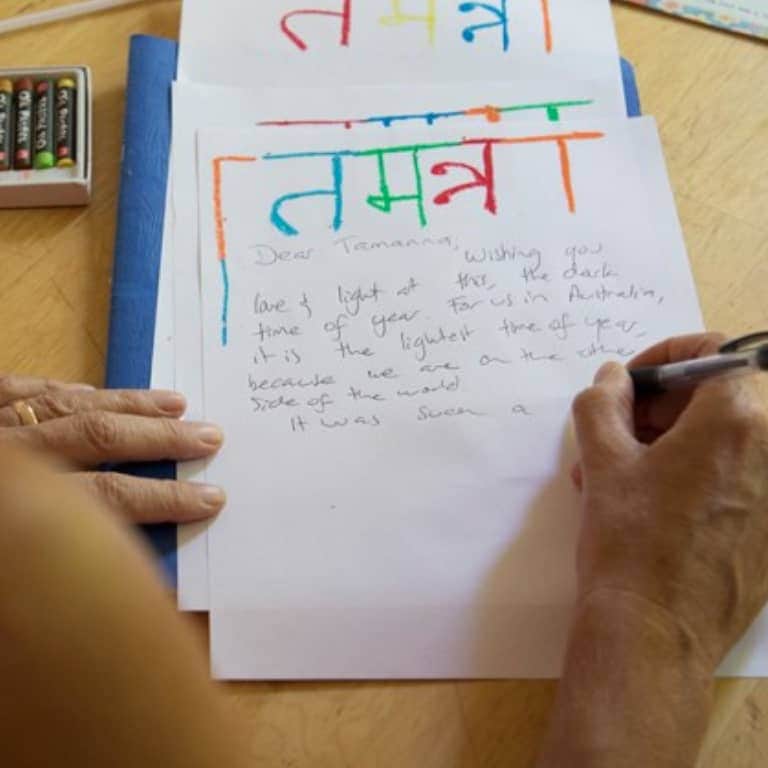 तमन्ना
तमन्ना
Dear Tamanna, wishing you
love & light at this, the dark
time of year. For us in Australia,
it is the lightest time of year,
because we are on the other
side of the world
It was such a